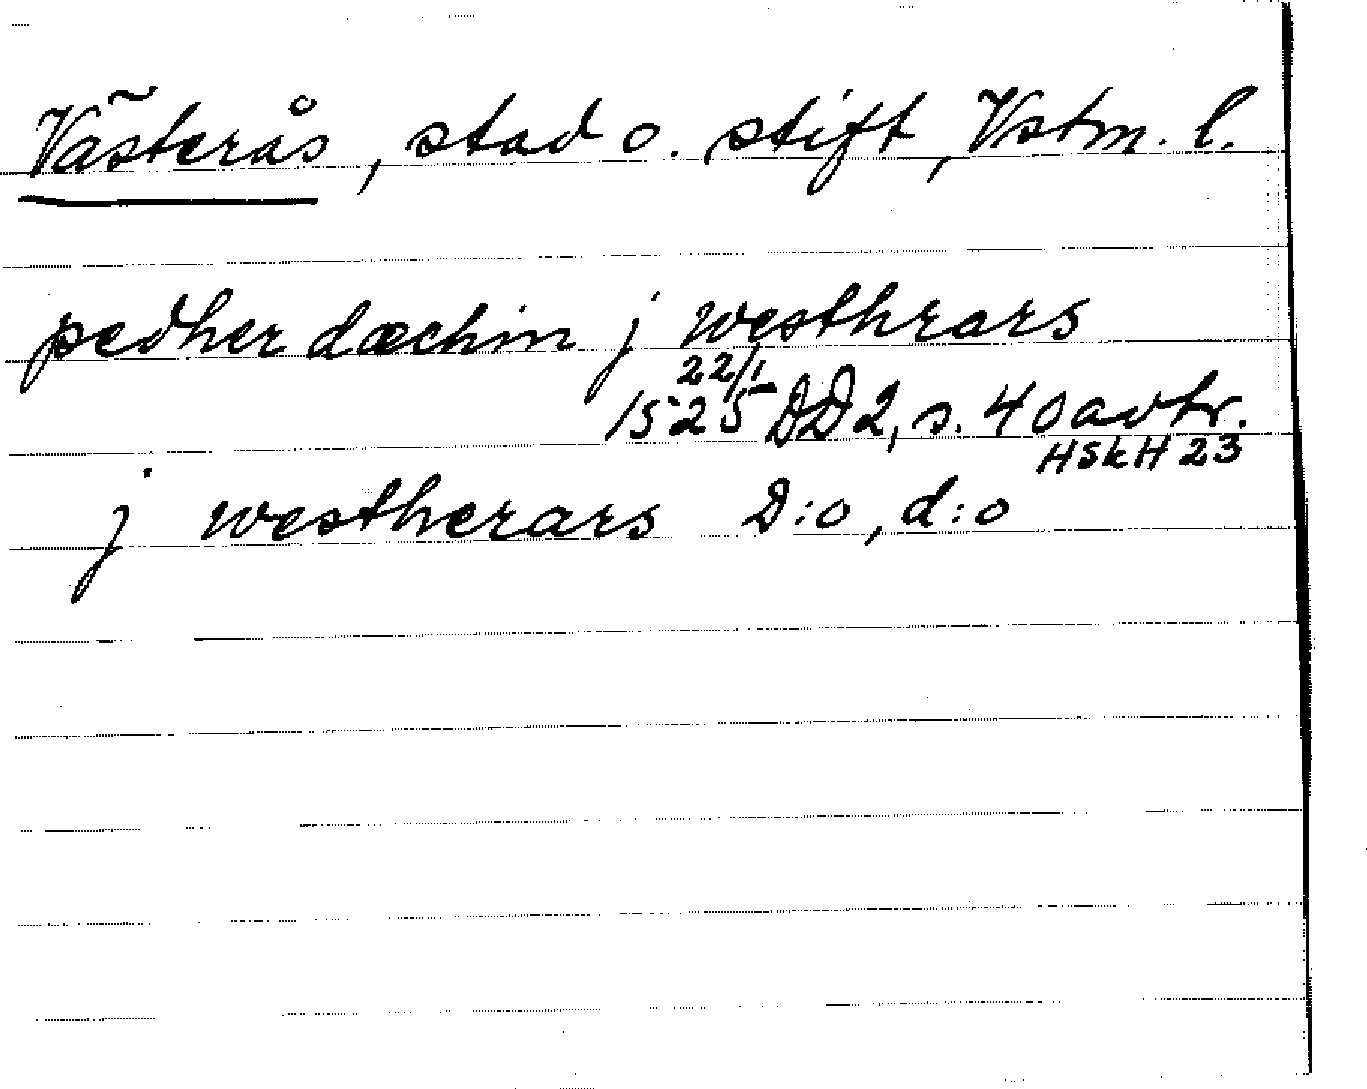 Västerås, stad o. stift, Vstm. l.
pedher dæchin j westhrars
22/1
1525 DD2, s. 40 avtr.
HSkH 23
j westherars D:o, d:o